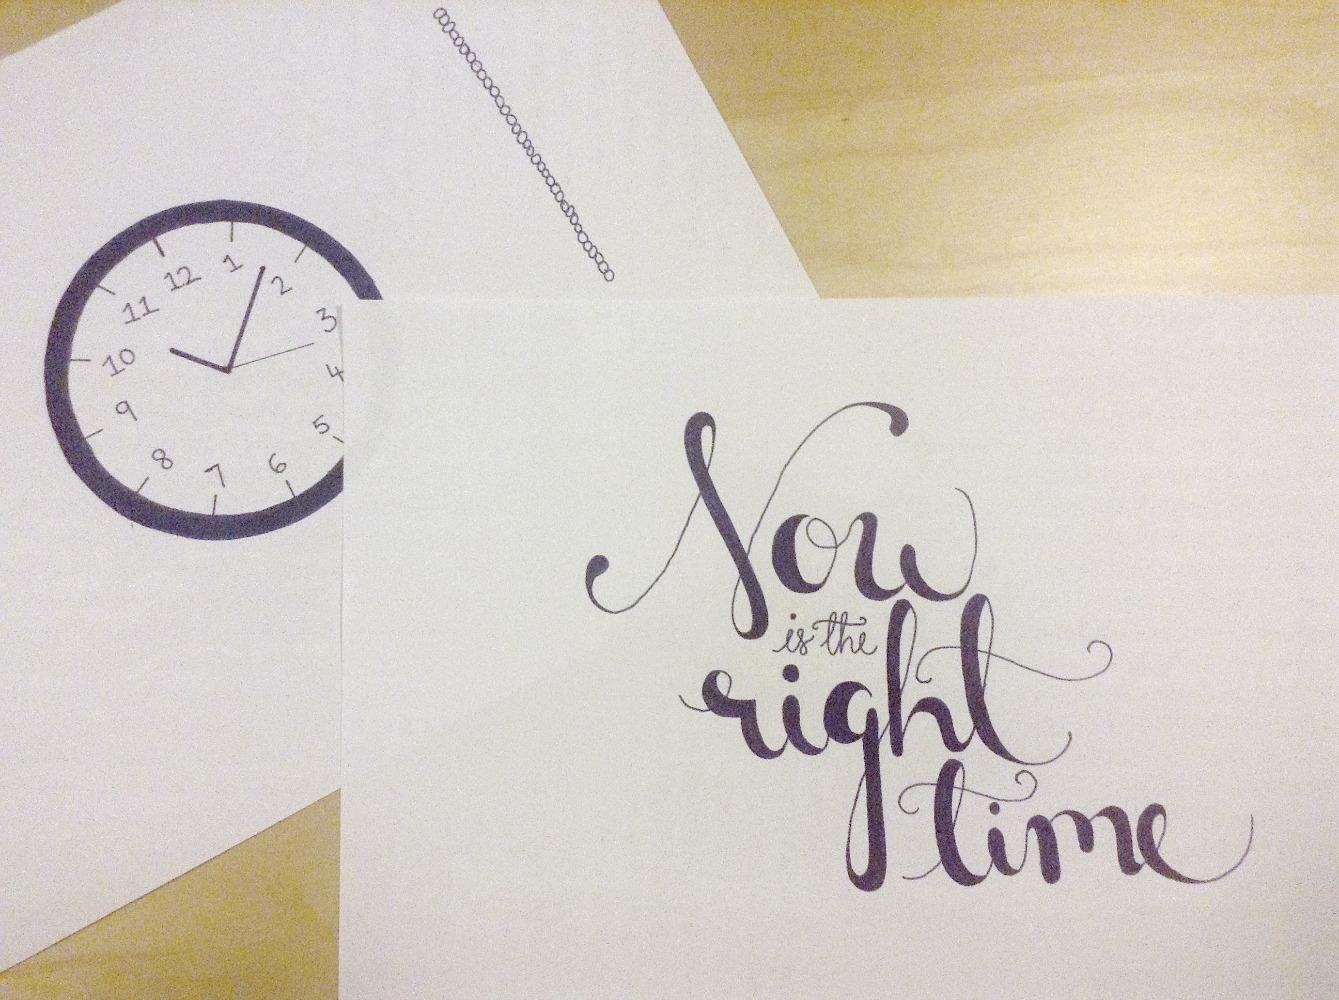 12
1
2
3
4
5
6
7
8
9
10
11
Now
is the
right
time